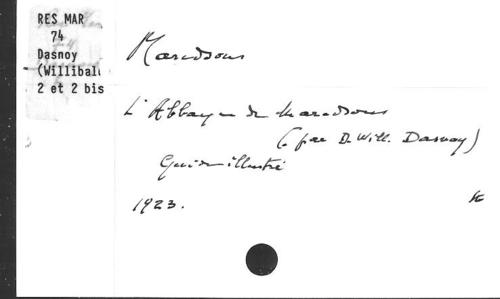 RES MAR
74
Dasnoy
(Willibal
2 et 2 bis
Maredsous
L'Abbaye de Maredsous
(par D. Will. Dasnoy)
Guide illustré
1923.